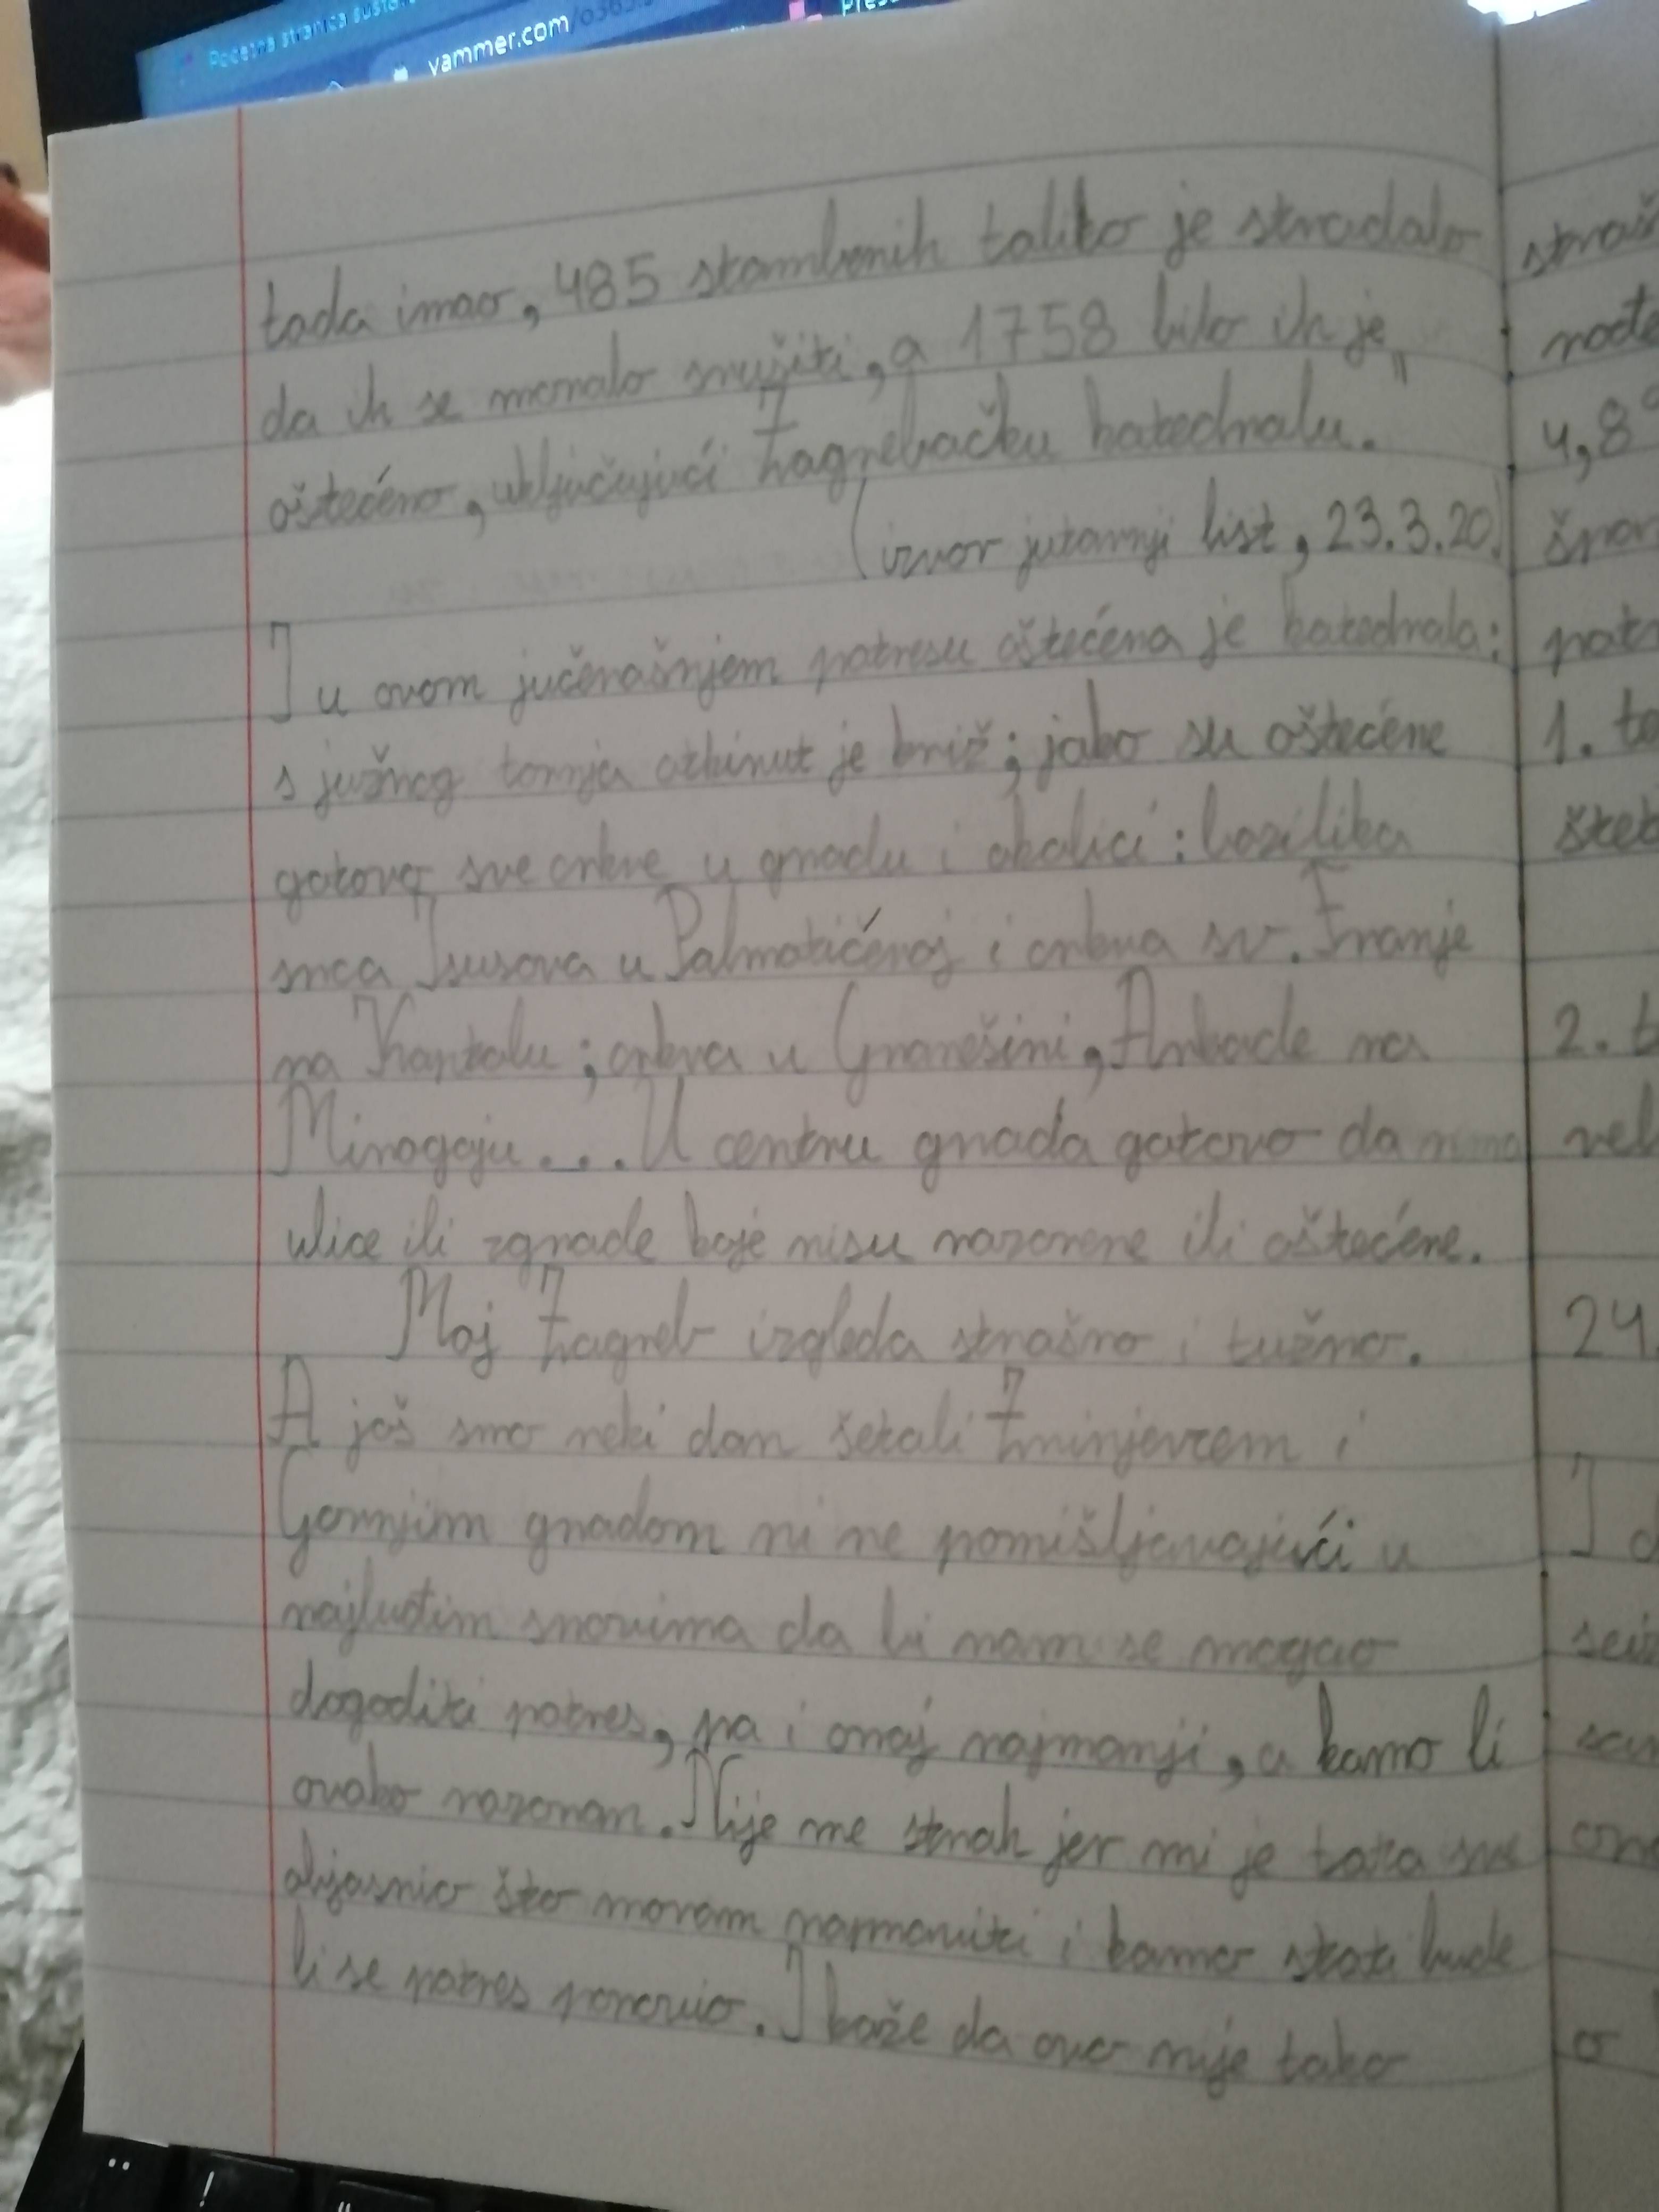 Početna stranica susta
yammer.com/o365.
tada imao, 485 stambenih toliko je stradalo
da ih se moralo srušiti, a 1758 bilo ih je
oštećeno, uključujući Zagrebačku katedralu."
(izvor jutarnji list, 23.3.20.)
I u ovom jučerašnjem potresu oštećena je katedrala:
s južnog tornja otkinut je križ; jako su oštećene
gotovo sve crkve u gradu i okolici: bazilika
srca Isusova u Palmotićevoj i crkva sv. Franje
na Kaptolu; crkva u Granešini, Arkade na
Mirogoju... U centru grada gotovo da nema
ulice ili zgrade koje nisu razorene ili oštećene.
Moj Zagreb izgleda strašno i tužno.
A još smo neki dan šetali Zrinjevcem i
Gornjim gradom ni ne pomišljavajući u
najluđim snovima da bi nam se mogao
dogoditi potres, pa i onaj najmanji, a kamo li
ovako razoran. Nije me strah jer mi je tata sve
objasnio što moram napraviti i kamo stati bude
li se potres ponovio. I kaže da ovo nije tako
4,8
1.
2.
24.
I
o